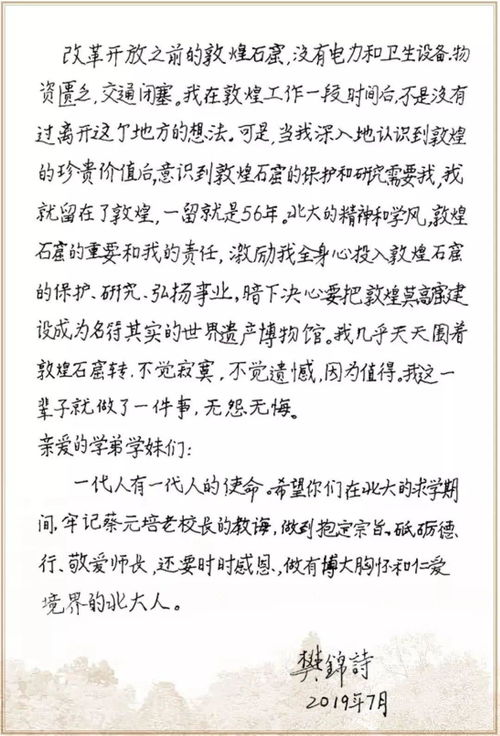 改革开放之前的敦煌石窟,没有电力和卫生设备.物
资匮乏,交通闭塞。我在敦煌工作一段时间后,不是没有
过离开这个地方的想法。可是,当我深入地认识到敦煌
的珍贵价值后,意识到敦煌石窟的保护和研究需要我,我
就留在了敦煌,一留就是56年。北大的精神和学风,敦煌
石窟的重要和我的责任,激励我全身心投入敦煌石窟
的保护、研究、弘扬事业,暗下决心要把敦煌莫高窟建
设成为名符其实的世界遗产博物馆。我几乎天天围着
敦煌石窟转.不觉寂寞,不觉遗憾,因为值得。我这一
辈子就做了一件事,无怨无悔。
亲爱的学弟学妹们:
一代人有一代人的使命。希望你们在北大的求学期
间,牢记蔡元培老校长的教诲,做到抱定宗旨、砥砺德
行、敬爱师长,还要时时感恩,做有博大胸怀和仁爱
境界的北大人。
樊錦詩
2019年7月